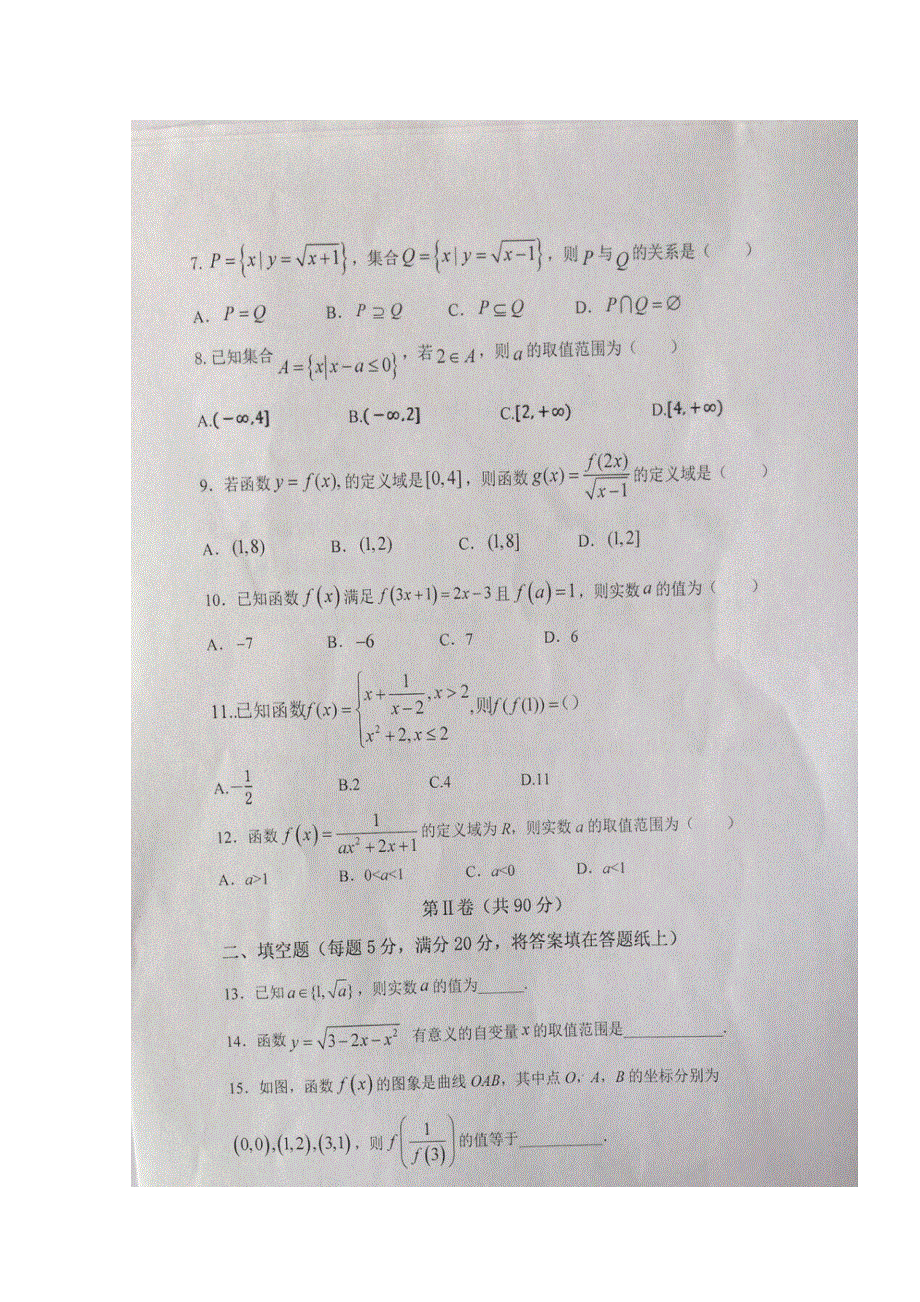 7. P={x|y=√(x+1)}，集合Q={x|y=√(x−1)}，则P与Q的关系是（　　）
A．P=Q　　B．P⊇Q　　C．P⊆Q　　D．P⋂Q=∅
8. 已知集合A={x|x−a≤0}，若2∈A，则a的取值范围为（　　）
A.(−∞,4]　　B.(−∞,2]　　C.[2,+∞)　　D.[4,+∞)
9．若函数y=f(x),的定义域是[0,4]，则函数g(x)=f(2x)/√(x−1)的定义域是（　　）
A．(1,8)　　B．(1,2)　　C．(1,8]　　D．(1,2]
10．已知函数f(x)满足f(3x+1)=2x−3且f(a)=1，则实数a的值为（　　）
A．−7　　B．−6　　C．7　　D．6
11..已知函数f(x)={x+1/(x−2),x>2; x²+2,x≤2,则f(f(1))=()
A.−1/2　　B.2　　C.4　　D.11
12．函数f(x)=1/(ax²+2x+1)的定义域为R，则实数a的取值范围为（　　）
A．a>1　　B．0<a<1　　C．a<0　　D．a<1
第Ⅱ卷（共90分）
二、填空题（每题5分，满分20分，将答案填在答题纸上）
13．已知a∈{1,√a}，则实数a的值为______.
14．函数y=√(3−2x−x²) 有意义的自变量x的取值范围是____________.
15．如图，函数f(x)的图象是曲线OAB，其中点O，A，B的坐标分别为
(0,0),(1,2),(3,1)，则f(1/f(3))的值等于__________.